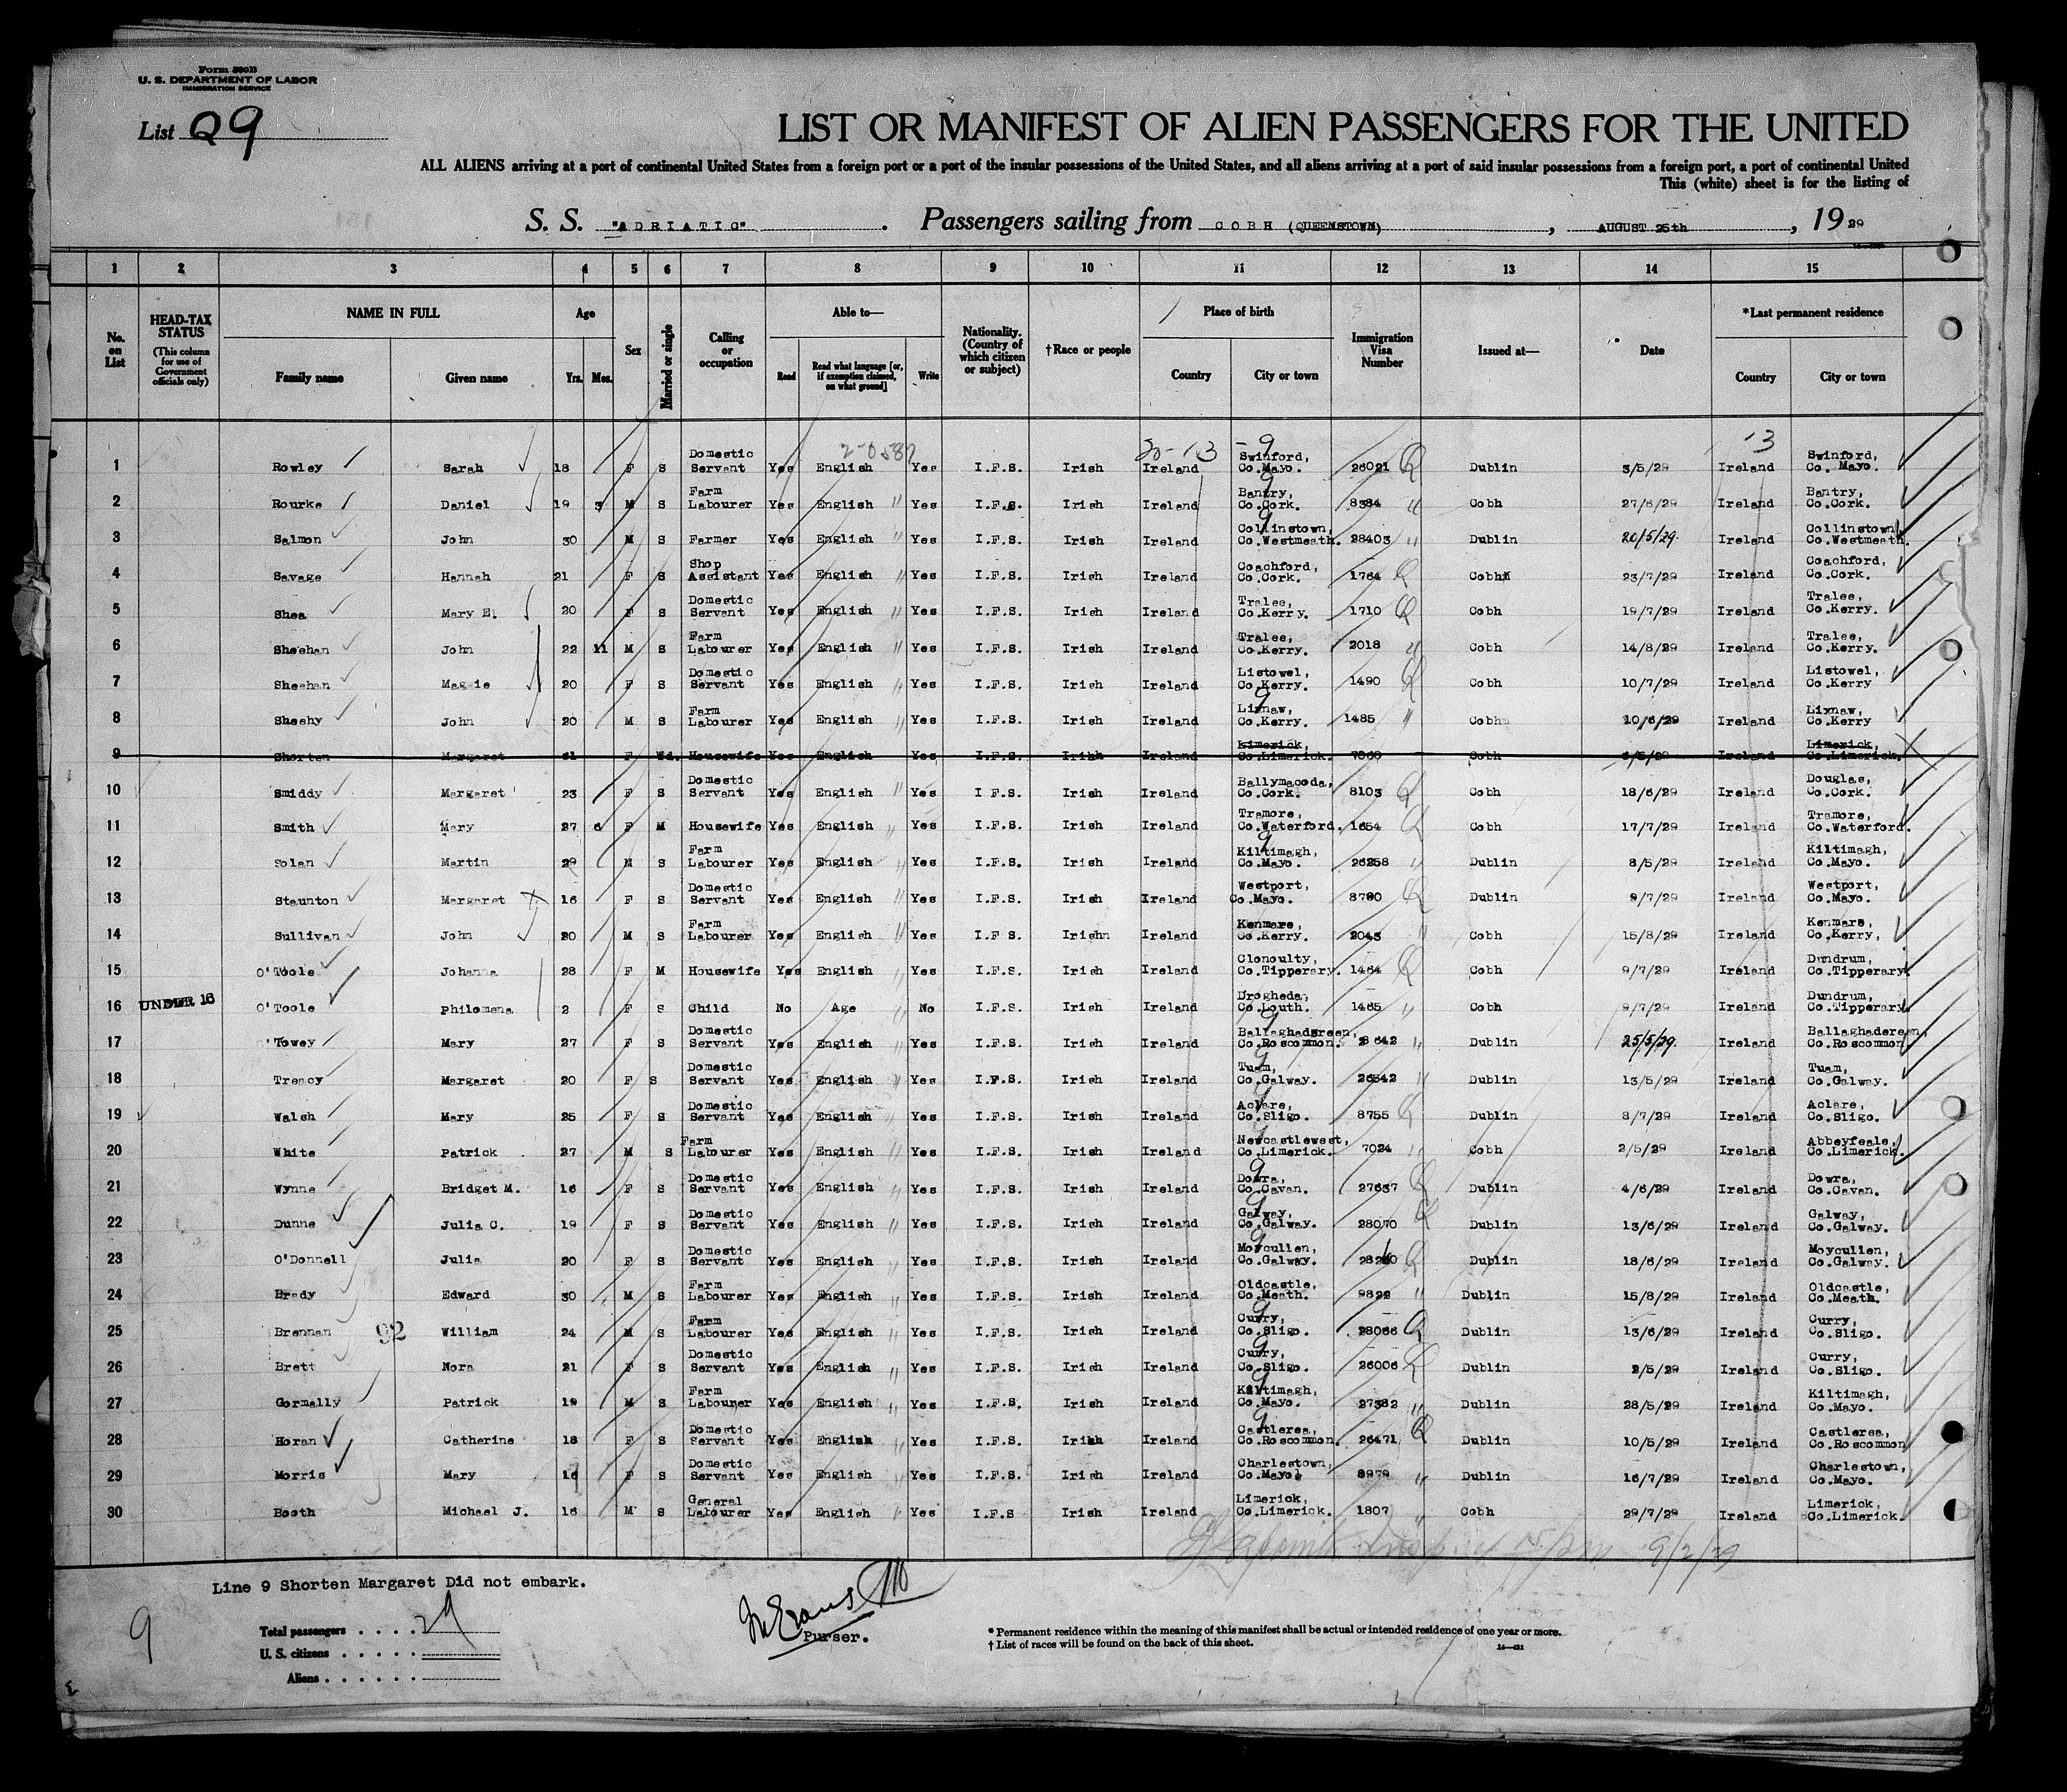 Form 500B
U. S. DEPARTMENT OF LABOR
IMMIGRATION SERVICE
List 29
LIST OR MANIFEST OF ALIEN PASSENGERS FOR THE UNITED
ALL ALIENS arriving at a port of continental United States from a foreign port or a port of the insular possessions of the United States, and all aliens arriving at a port of said insular possessions from a foreign port, a port of continental United
This (white) sheet is for the listing of
S. S. "ADRIATIC" . Passengers sailing from COBH (QUEENSTOWN) , AUGUST 25th , 1929
1 2 3 4 5 6 7 8 9 10 11 12 13 14 15
No. on List HEAD-TAX STATUS (This column for use of Government officials only) NAME IN FULL Family name Given name Age Yrs. Mos. Sex Married or single Calling or occupation Able to— Read Read what language [or, if exemption claimed, on what ground] Write Nationality. (Country of which citizen or subject) †Race or people Place of birth Country City or town Immigration Visa Number Issued at— Date *Last permanent residence Country City or town
1 Rowley Sarah 18 F S Domestic Servant Yes English Yes I.F.S. Irish Ireland Swinford, Co.Mayo. 26021 Dublin 3/5/29 Ireland Swinford, Co. Mayo.
2 Rourke Daniel 19 3 M S Farm Labourer Yes English Yes I.F.S. Irish Ireland Bantry, Co.Cork. 8384 Cobh 27/6/29 Ireland Bantry, Co.Cork.
3 Salmon John 30 M S Farmer Yes English Yes I.F.S. Irish Ireland Collinstown, Co.Westmeath. 28403 Dublin 20/5/29. Ireland Collinstown, Co.Westmeath.
4 Savage Hannah 21 F S Shop Assistant Yes English Yes I.F.S. Irish Ireland Coachford, Co.Cork. 1764 Cobh 23/7/29 Ireland Coachford, Co.Cork.
5 Shea Mary E. 20 F S Domestic Servant Yes English Yes I.F.S. Irish Ireland Tralee, Co.Kerry. 1710 Cobh 19/7/29 Ireland Tralee, Co.Kerry.
6 Sheehan John 22 11 M S Farm Labourer Yes English Yes I.F.S. Irish Ireland Tralee, Co.Kerry. 2018 Cobh 14/8/29 Ireland Tralee, Co.Kerry.
7 Sheehan Maggie 20 F S Domestic Servant Yes English Yes I.F.S. Irish Ireland Listowel, Co.Kerry. 1490 Cobh 10/7/29 Ireland Listowel, Co.Kerry
8 Sheehy John 20 M S Farm Labourer Yes English Yes I.F.S. Irish Ireland Lixnaw, Co.Kerry. 1485 Cobh 10/6/29 Ireland Lixnaw, Co.Kerry
9 Shorten Margaret F Wd. Housewife Yes English Yes I.F.S. Irish Ireland Limerick, Co.Limerick. Cobh Ireland Limerick, Co.Limerick.
10 Smiddy Margaret 23 F S Domestic Servant Yes English Yes I F.S. Irish Ireland Ballymacoda, Co.Cork. 8103 Cobh 18/6/29 Ireland Douglas, Co.Cork.
11 Smith Mary 27 6 F M Housewife Yes English Yes I.F.S. Irish Ireland Tramore, Co.Waterford. 1654 Cobh 17/7/29 Ireland Tramore, Co.Waterford.
12 Solan Martin 29 M S Farm Labourer Yes English Yes I.F.S. Irish Ireland Kiltimagh, Co.Mayo. 26258 Dublin 8/5/29 Ireland Kiltimagh, Co.Mayo.
13 Staunton Margaret 16 F S Domestic Servant Yes English Yes I.F.S. Irish Ireland Westport, Co.Mayo. 8790 Dublin 9/7/29 Ireland Westport, Co.Mayo.
14 Sullivan John 20 M S Farm Labourer Yes English Yes I.F S. Irishn Ireland Kenmare, Co.Kerry. 2043 Cobh 15/8/29 Ireland Kenmare, Co.Kerry,
15 O'Toole Johanna 28 F M Housewife Yes English Yes I.F.S. Irish Ireland Clonoulty, Co.Tipperary. 1464 Cobh 9/7/29 Ireland Dundrum, Co.Tipperary.
16 UNDER 16 O'Toole Philomena 2 F S Child No Age No I.F.S. Irish Ireland Drogheda, Co.Louth. 1465 Cobh 9/7/29 Ireland Dundrum, Co.Tipperary.
17 Towey Mary 27 F S Domestic Servant Yes English Yes I.F.S. Irish Ireland Ballaghadereen, Co.Roscommon. 28642 Dublin 25/5/29. Ireland Ballaghadereen, Co.Roscommon
18 Treacy Margaret 20 F S Domestic Servant Yes English Yes I.F.S. Irish Ireland Tuam, Co.Galway. 26542 Dublin 13/5/29 Ireland Tuam, Co.Galway.
19 Walsh Mary 25 F S Domestic Servant Yes English Yes I.F.S. Irish Ireland Aclare, Co.Sligo. 8755 Dublin 8/7/29 Ireland Aclare, Co.Sligo.
20 White Patrick 27 M S Farm Labourer Yes English Yes I.F.S. Irish Ireland Newcastlewest, Co.Limerick. 7024 Cobh 2/5/29 Ireland Abbeyfeale, Co.Limerick.
21 Wynne Bridget M. 16 F S Domestic Servant Yes English Yes I.F.S. Irish Ireland Dowra, Co.Cavan. 27637 Dublin 4/6/29 Ireland Dowra, Co.Cavan.
22 Dunne Julia C. 19 F S Domestic Servant Yes English Yes I.F.S. Irish Ireland Galway, Co.Galway. 28070 Dublin 13/6/29 Ireland Galway, Co.Galway.
23 O'Donnell Julia 20 F S Domestic Servant Yes English Yes I.F.S. Irish Ireland Moycullen, Co.Galway. Dublin 18/6/29 Ireland Moycullen, Co.Galway.
24 Brady Edward 30 M S Farm Labourer Yes English Yes I.F.S. Irish Ireland Oldcastle, Co.Meath. 9822 Dublin 15/8/29 Ireland Oldcastle, Co.Meath.
25 Brennan 92 William 24 M S Farm Labourer Yes English Yes I.F.S. Irish Ireland Curry, Co.Sligo. 28066 Dublin 13/6/29 Ireland Curry, Co.Sligo.
26 Brett Nora 21 F S Domestic Servant Yes English Yes I.F.S. Irish Ireland Curry, Co.Sligo. 26006 Dublin 2/5/29 Ireland Curry, Co.Sligo.
27 Gormally Patrick 19 M S Farm Labourer Yes English Yes I.F.S. Irish Ireland Kiltimagh, Co.Mayo. 27382 Dublin 28/5/29 Ireland Kiltimagh, Co.Mayo.
28 Horan Catherine 18 F S Domestic Servant Yes English Yes I.F.S. Irish Ireland Castlerea, Co.Roscommon. 26471 Dublin 10/5/29 Ireland Castlerea, Co.Roscommon
29 Morris Mary 16 F S Domestic Servant Yes English Yes I.F.S. Irish Ireland Charlestown, Co.Mayo. 8979 Dublin 16/7/29 Ireland Charlestown, Co.Mayo.
30 Booth Michael J. 16 M S General Labourer Yes English Yes I.F.S Irish Ireland Limerick, Co.Limerick. 1807 Cobh 29/7/29 Ireland Limerick, Co.Limerick.
9/2/29
Line 9 Shorten Margaret Did not embark.
9
Total passengers . . . . 29
U. S. citizens . . . . .
Aliens . . . . . .
Purser.
* Permanent residence within the meaning of this manifest shall be actual or intended residence of one year or more.
† List of races will be found on the back of this sheet.